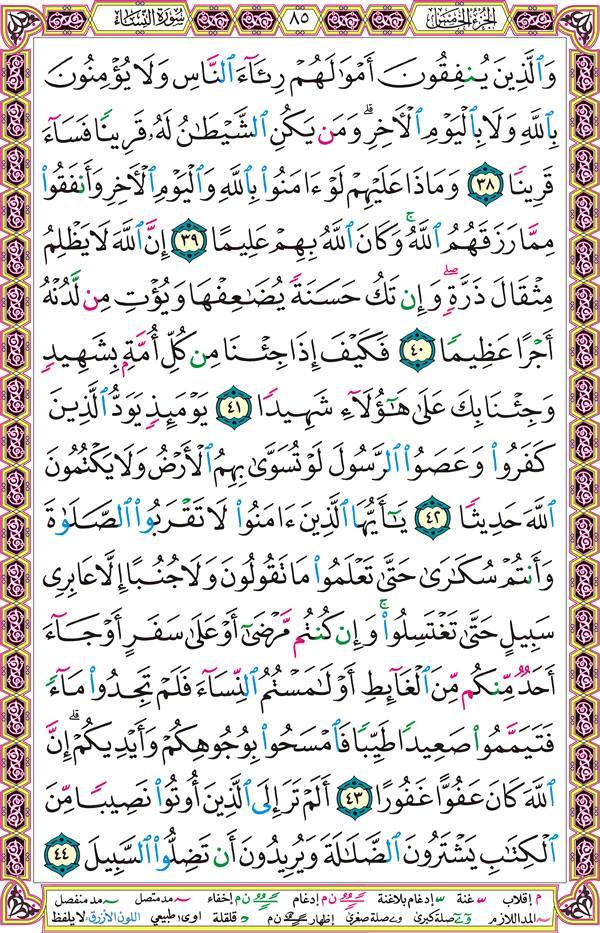 الجزء الخامس ٨٥ سورة النساء
وَٱلَّذِينَ يُنفِقُونَ أَمْوَٰلَهُمْ رِئَآءَ ٱلنَّاسِ وَلَا يُؤْمِنُونَ
بِٱللَّهِ وَلَا بِٱلْيَوْمِ ٱلْأَخِرِ ۗ وَمَن يَكُنِ ٱلشَّيْطَٰنُ لَهُۥ قَرِينًا فَسَآءَ
قَرِينًا ٣٨ وَمَاذَا عَلَيْهِمْ لَوْ ءَامَنُوا۟ بِٱللَّهِ وَٱلْيَوْمِ ٱلْأَخِرِ وَأَنفَقُوا۟
مِمَّا رَزَقَهُمُ ٱللَّهُ ۚ وَكَانَ ٱللَّهُ بِهِمْ عَلِيمًا ٣٩ إِنَّ ٱللَّهَ لَا يَظْلِمُ
مِثْقَالَ ذَرَّةٍ ۖ وَإِن تَكُ حَسَنَةً يُضَٰعِفْهَا وَيُؤْتِ مِن لَّدُنْهُ
أَجْرًا عَظِيمًا ٤٠ فَكَيْفَ إِذَا جِئْنَا مِن كُلِّ أُمَّةٍۭ بِشَهِيدٍ
وَجِئْنَا بِكَ عَلَىٰ هَٰٓؤُلَآءِ شَهِيدًا ٤١ يَوْمَئِذٍ يَوَدُّ ٱلَّذِينَ
كَفَرُوا۟ وَعَصَوُا۟ ٱلرَّسُولَ لَوْ تُسَوَّىٰ بِهِمُ ٱلْأَرْضُ وَلَا يَكْتُمُونَ
ٱللَّهَ حَدِيثًا ٤٢ يَٰٓأَيُّهَا ٱلَّذِينَ ءَامَنُوا۟ لَا تَقْرَبُوا۟ ٱلصَّلَوٰةَ
وَأَنتُمْ سُكَٰرَىٰ حَتَّىٰ تَعْلَمُوا۟ مَا تَقُولُونَ وَلَا جُنُبًا إِلَّا عَابِرِى
سَبِيلٍ حَتَّىٰ تَغْتَسِلُوا۟ ۚ وَإِن كُنتُم مَّرْضَىٰٓ أَوْ عَلَىٰ سَفَرٍ أَوْ جَآءَ
أَحَدٌ مِّنكُم مِّنَ ٱلْغَآئِطِ أَوْ لَٰمَسْتُمُ ٱلنِّسَآءَ فَلَمْ تَجِدُوا۟ مَآءً
فَتَيَمَّمُوا۟ صَعِيدًا طَيِّبًا فَٱمْسَحُوا۟ بِوُجُوهِكُمْ وَأَيْدِيكُمْ ۗ إِنَّ
ٱللَّهَ كَانَ عَفُوًّا غَفُورًا ٤٣ أَلَمْ تَرَ إِلَى ٱلَّذِينَ أُوتُوا۟ نَصِيبًا مِّنَ
ٱلْكِتَٰبِ يَشْتَرُونَ ٱلضَّلَٰلَةَ وَيُرِيدُونَ أَن تَضِلُّوا۟ ٱلسَّبِيلَ ٤٤
م إقلاب غنة إدغام بلاغنة ن م إدغام ن م إخفاء مد متصل مد منفصل
المد اللازم صلة كبرى صلة صغرى إظهار ن م قلقلة اوى طبيعي اللون الأزرق: لا يلفظ